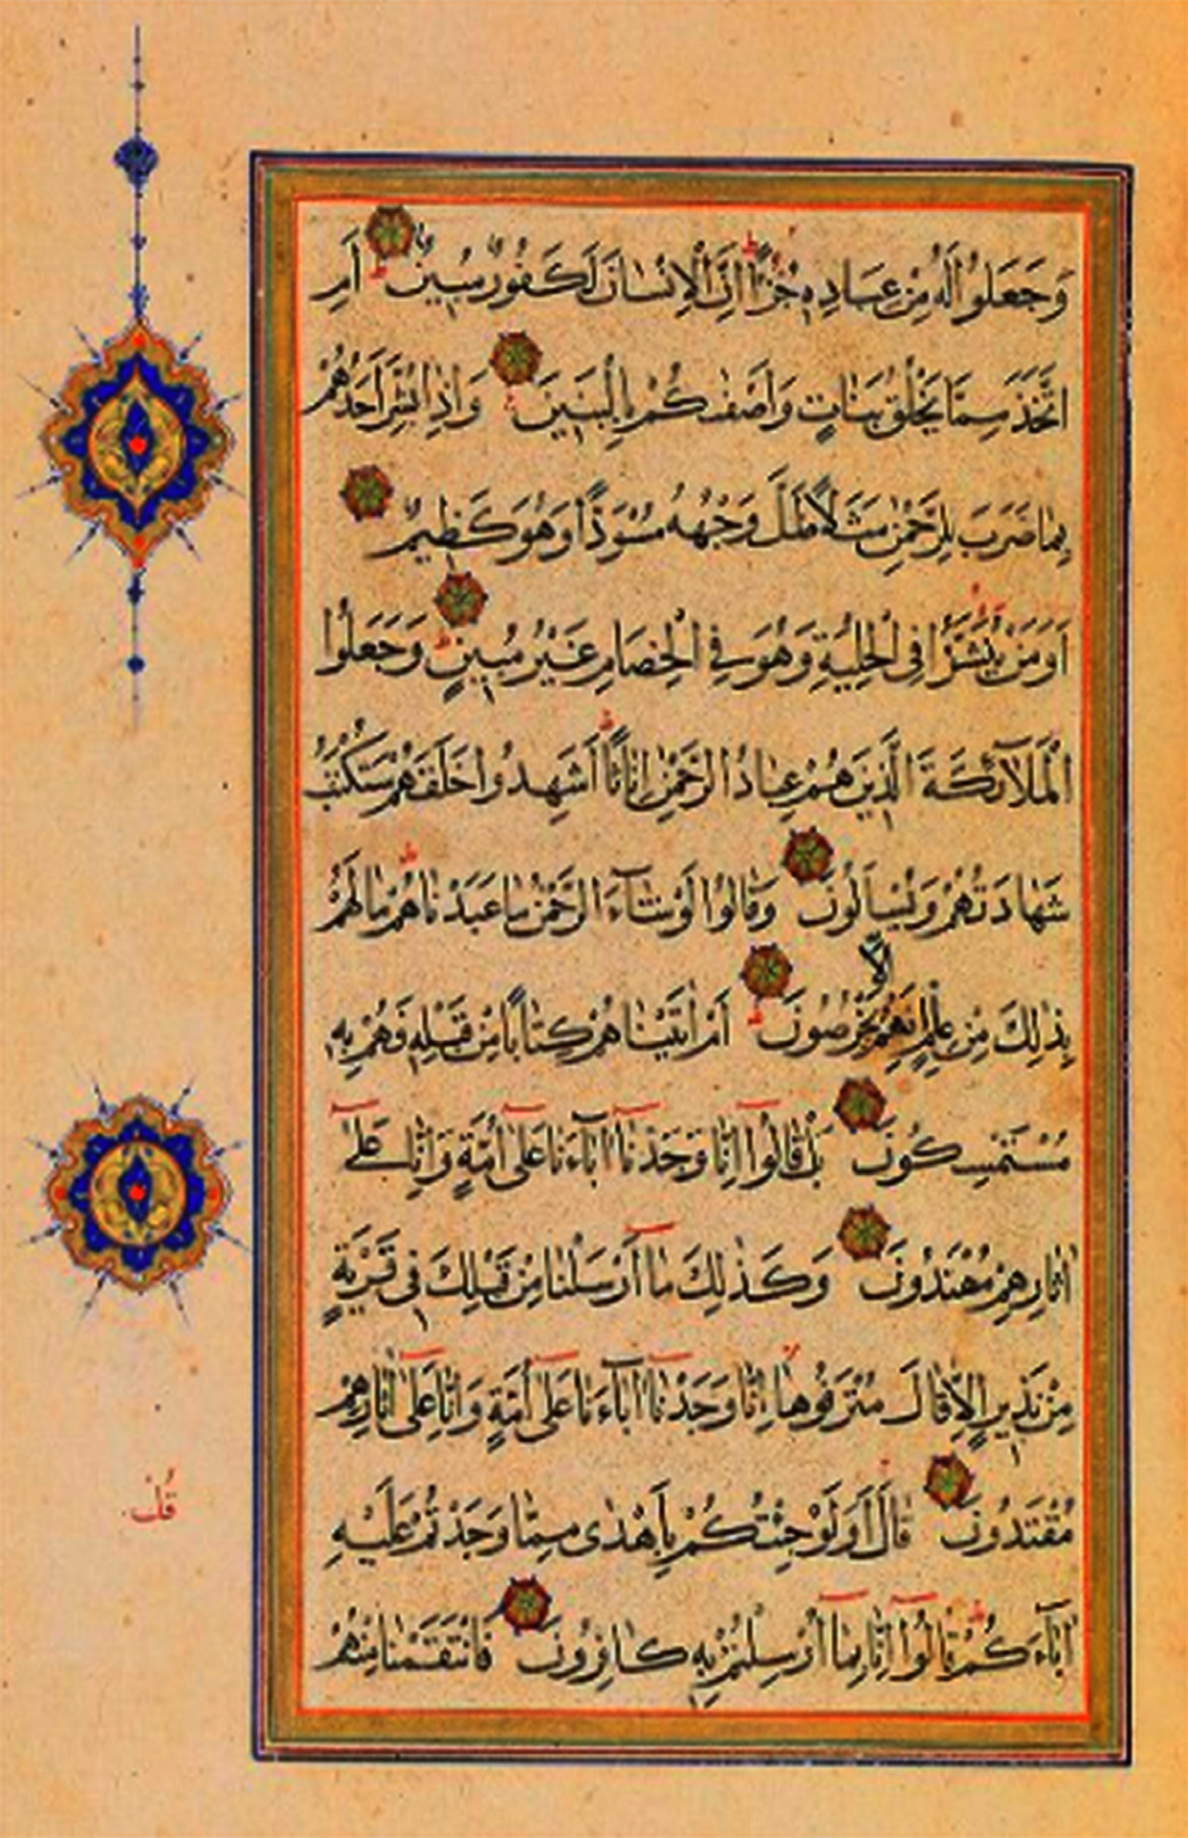 وَجَعَلُوا لَهُ مِنْ عِبَادِهِ جُزْءًا اِنَّ الْاِنْسَانَ لَكَفُورٌ مُبِينٌ اَمِ
اتَّخَذَ مِمَّا يَخْلُقُ بَنَاتٍ وَاَصْفٰيكُمْ بِالْبَنِينَ وَاِذَا بُشِّرَ اَحَدُهُمْ
بِمَا ضَرَبَ لِلرَّحْمٰنِ مَثَلًا ظَلَّ وَجْهُهُ مُسْوَدًّا وَهُوَ كَظِيمٌ
اَوَمَنْ يُنَشَّؤُا فِى الْحِلْيَةِ وَهُوَ فِى الْخِصَامِ غَيْرُ مُبِينٍ وَجَعَلُوا
الْمَلَآئِكَةَ الَّذِينَ هُمْ عِبَادُ الرَّحْمٰنِ اِنَاثًا اَشَهِدُوا خَلْقَهُمْ سَتُكْتَبُ
شَهَادَتُهُمْ وَيُسْاَلُونَ وَقَالُوا لَوْ شَآءَ الرَّحْمٰنُ مَا عَبَدْنَاهُمْ مَا لَهُمْ
بِذٰلِكَ مِنْ عِلْمٍ اِنْ هُمْ اِلَّا يَخْرُصُونَ اَمْ اٰتَيْنَاهُمْ كِتَابًا مِنْ قَبْلِهِ فَهُمْ بِهِ
مُسْتَمْسِكُونَ بَلْ قَالُوا اِنَّا وَجَدْنَا اٰبَآءَنَا عَلٰى اُمَّةٍ وَاِنَّا عَلٰى
اٰثَارِهِمْ مُهْتَدُونَ وَكَذٰلِكَ مَا اَرْسَلْنَا مِنْ قَبْلِكَ فِى قَرْيَةٍ
مِنْ نَذِيرٍ اِلَّا قَالَ مُتْرَفُوهَا اِنَّا وَجَدْنَا اٰبَآءَنَا عَلٰى اُمَّةٍ وَاِنَّا عَلٰى اٰثَارِهِمْ
مُقْتَدُونَ قَالَ اَوَلَوْ جِئْتُكُمْ بِاَهْدٰى مِمَّا وَجَدْتُمْ عَلَيْهِ
اٰبَآءَكُمْ قَالُوا اِنَّا بِمَا اُرْسِلْتُمْ بِهِ كَافِرُونَ فَانْتَقَمْنَا مِنْهُمْ
قُلْ